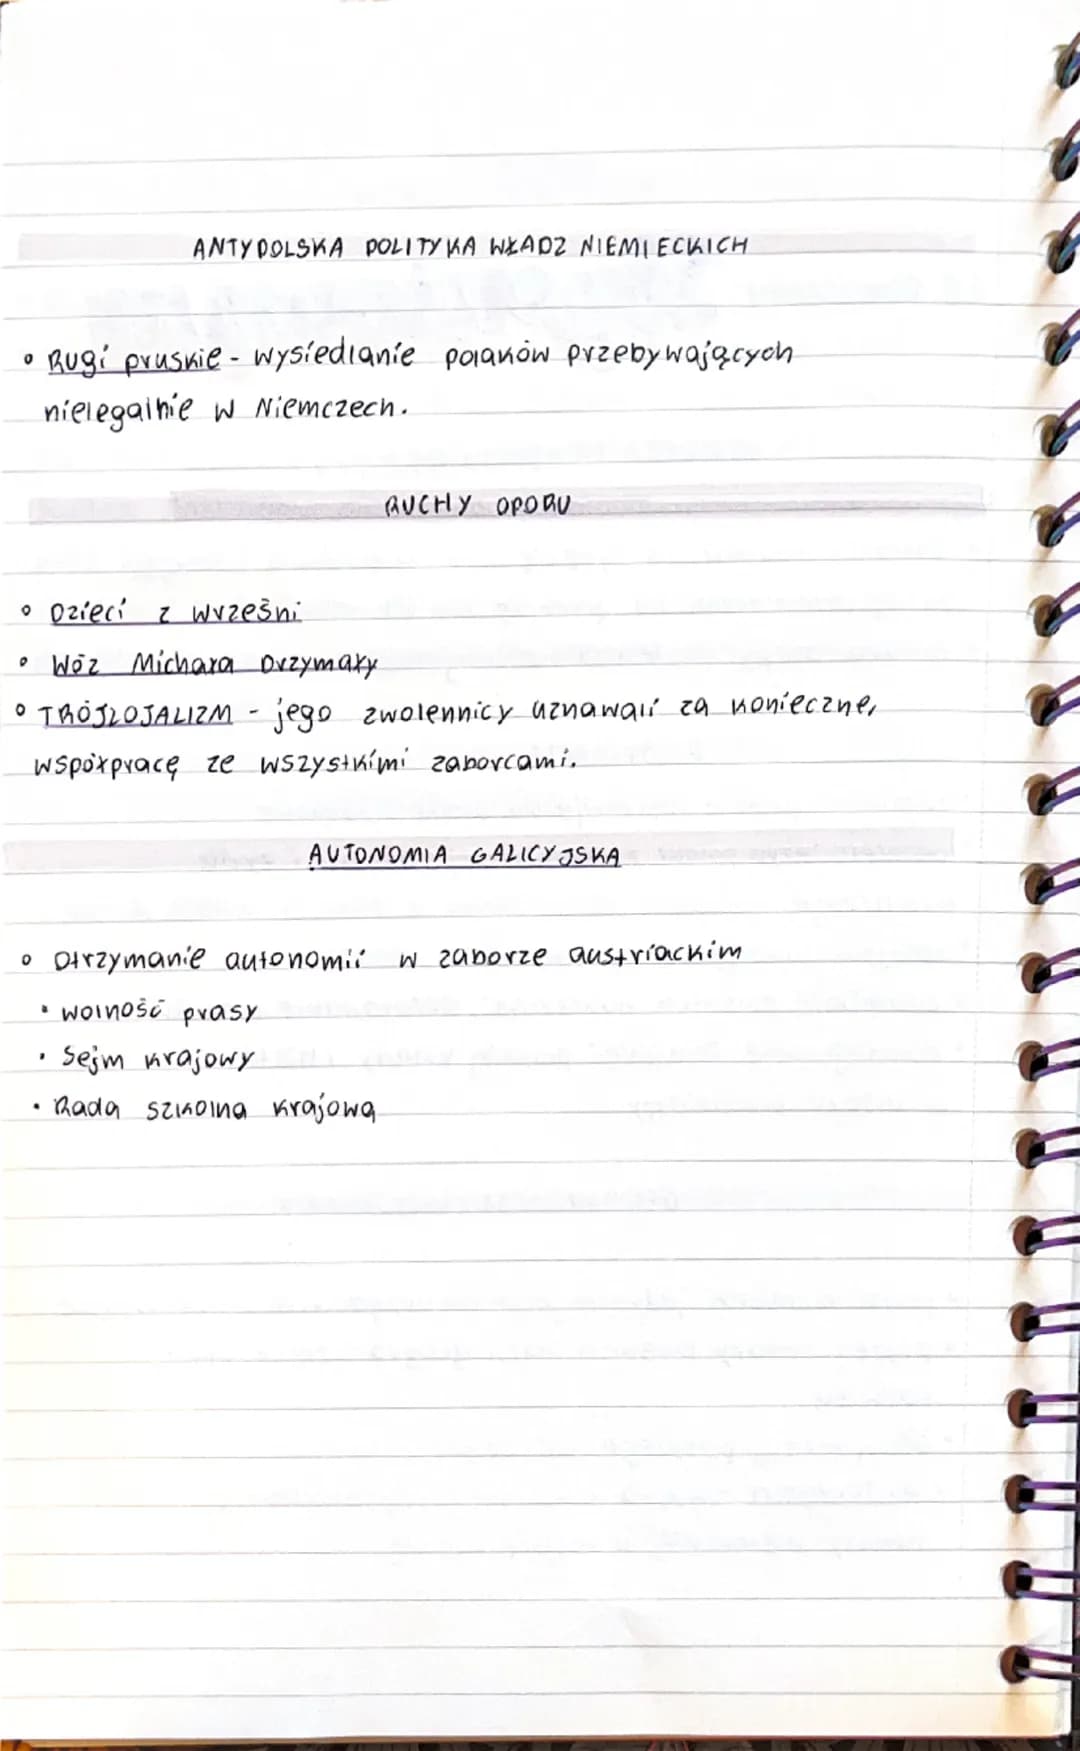 ANTYPOLSKA POLITYKA WŁADZ NIEMIECKICH
• Rugi pruskie - wysiedlanie polaków przebywających
nielegalnie w Niemczech.
RUCHY OPORU
• Dzieci z Wrześni
• Wóz Michała Drzymały
• TRÓJLOJALIZM - jego zwolennicy uznawali za konieczne,
współpracę ze wszystkimi zaborcami.
AUTONOMIA GALICYJSKA
• Otrzymanie autonomii w zaborze austriackim
• wolność prasy
• Sejm krajowy
• Rada szkolna krajowa